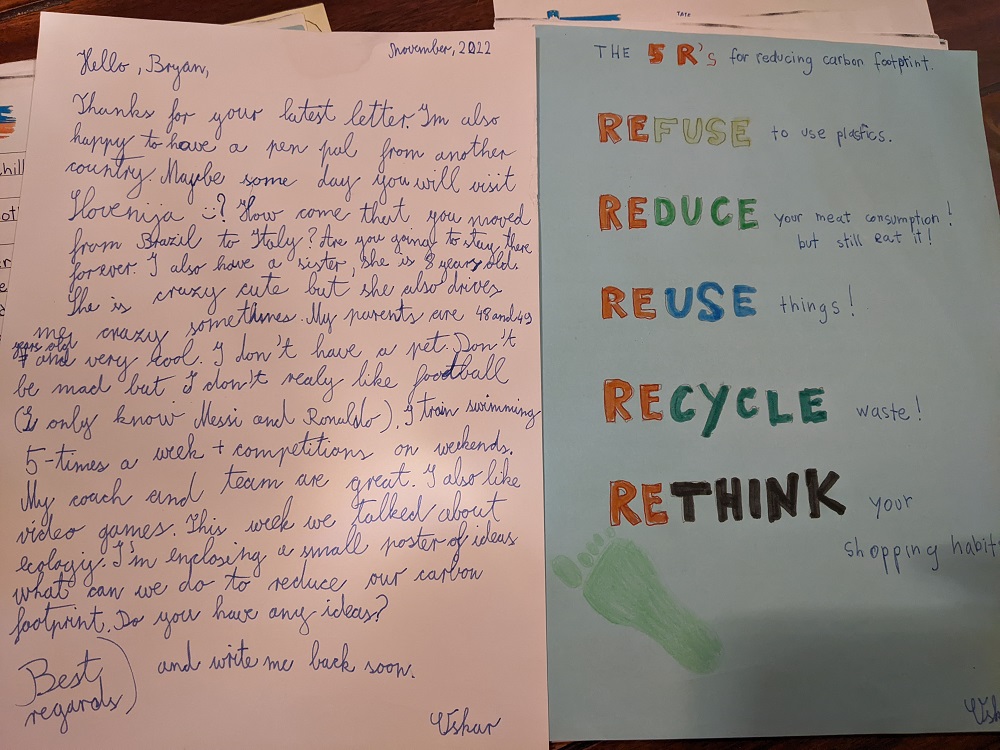 November, 2022
Hello, Bryan,
Thanks for your latest letter. I'm also
happy to have a pen pal from another
country. Maybe some day you will visit
Slovenija :)? How come that you moved
from Brazil to Italy? Are you going to stay there
forever. I also have a sister, she is 8 years old.
She is crazy cute but she also drives
me crazy sometimes. My parents are 48 and 49
years old
and very cool. I don't have a pet. Don't
be mad but I don't realy like football
(I only know Messi and Ronaldo). I train swimming
5-times a week + competitions on weekends.
My coach and team are great. I also like
video games. This week we talked about
ecology. I'm enclosing a small poster of ideas
what can we do to reduce our carbon
footprint. Do you have any ideas?
Best
regards)
and write me back soon.
Oskar
THE 5 R's for reducing carbon footprint.
REFUSE to use plastics.
REDUCE your meat consumption!
but still eat it!
REUSE things!
RECYCLE waste!
RETHINK your
shopping habit
TATE
hill